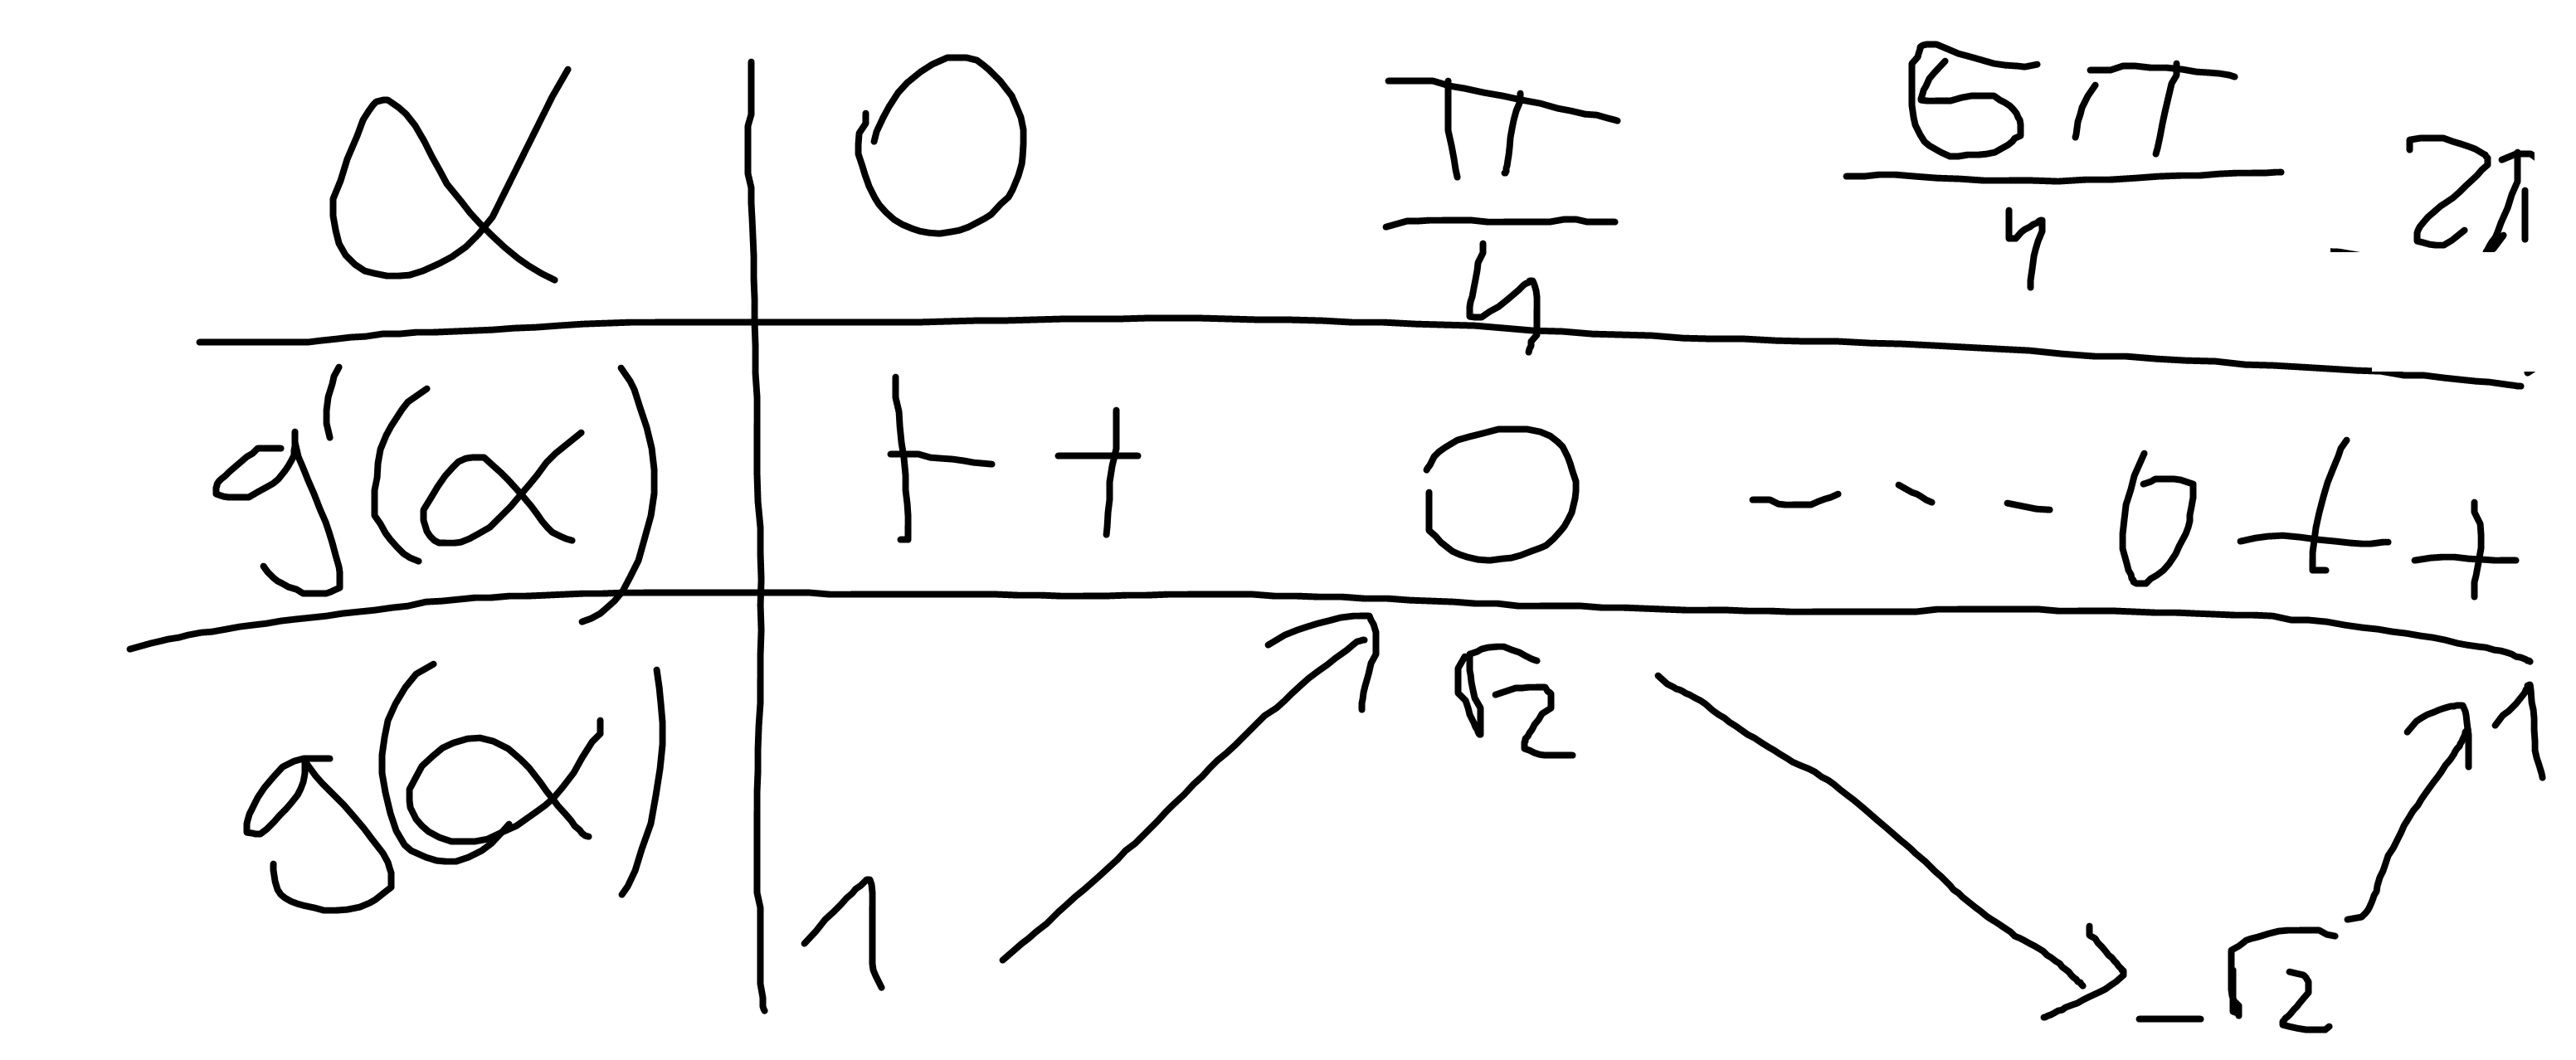 α 0 π/4 5π/4 2π
g'(α) + + 0 - - - 0 + +
g(α) 1 ↗ √2 ↘ -√2 ↗ 1